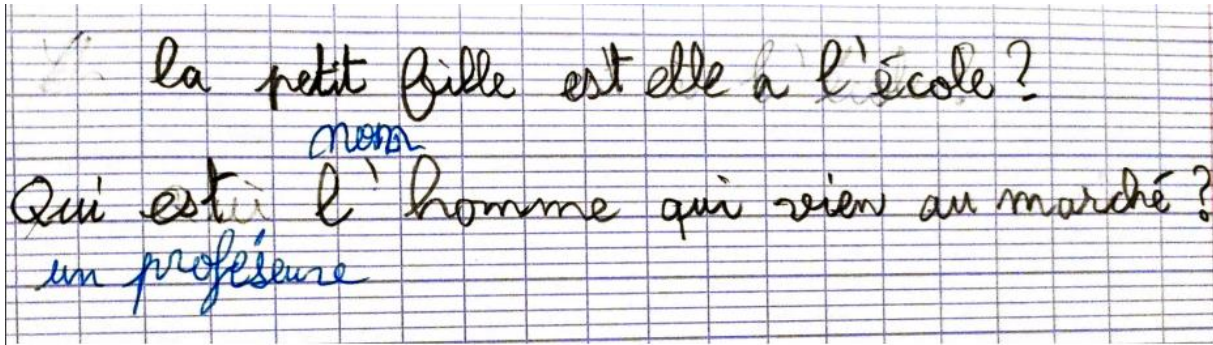 la petit fille est elle à l'école?
nom
Qui est l'homme qui vien au marché?
un proféseure